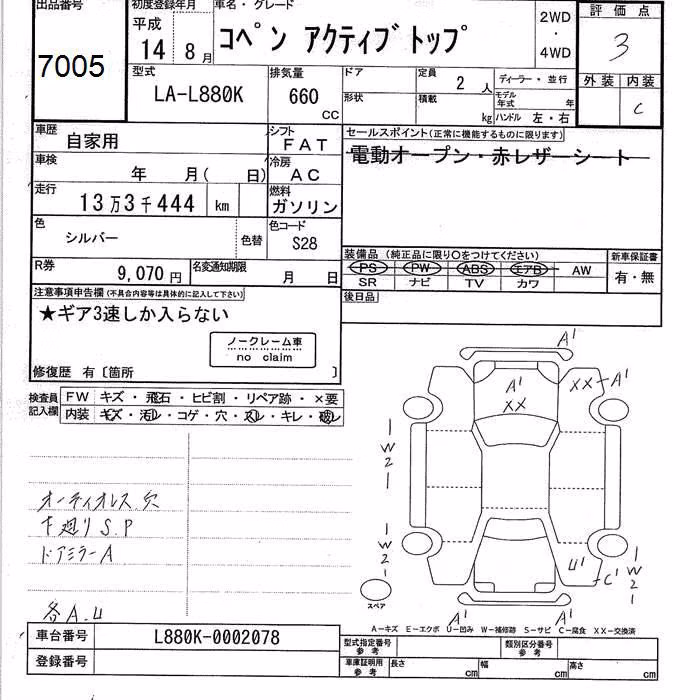 出品番号
7005
初度登録年月
平成
14 8月
車名・グレード
コペン アクティブトップ
2WD
・
4WD
評価点
3
外装 内装
C
型式
LA-L880K
排気量
660
CC
ドア
定員
2 人
形状
積載
kg
ディーラー・並行
モデル
年式 年
ハンドル 左・右
車歴
自家用
シフト
FAT
車検
年 月( 日)
冷房
AC
走行
13万3千444 km
燃料
ガソリン
色
シルバー
色替
色コード
S28
R券
9,070円
名変通知期限
月 日
セールスポイント(正常に機能するものに限ります)
電動オープン・赤レザーシート
装備品(純正品に限り○をつけてください)
PS PW ABS エアB AW
SR ナビ TV カワ
新車保証書
有・無
後日品
注意事項申告欄(不具合内容等は具体的に記入して下さい)
★ギア3速しか入らない
ノークレーム車
no claim
修復歴 有〔箇所 〕
検査員
記入欄
FW キズ・飛石・ヒビ割・リペア跡・×要
内装 キズ・汚レ・コゲ・穴・スレ・キレ・破レ
オーディオレス穴
下廻りS.P
ドアミラーA
各A.U
A1
A1
XX
XX-A1
1
W
2
1
1
W
2
1
U1
C1
1
W
2
1
スペア
A1
A1
A-キズ E-エクボ U-凹み W-補修跡 S-サビ C-腐食 XX-交換済
車台番号
L880K-0002078
登録番号
型式指定番号
参考
類別区分番号
参考
車庫証明用
参考
長さ cm
幅 cm
高さ cm